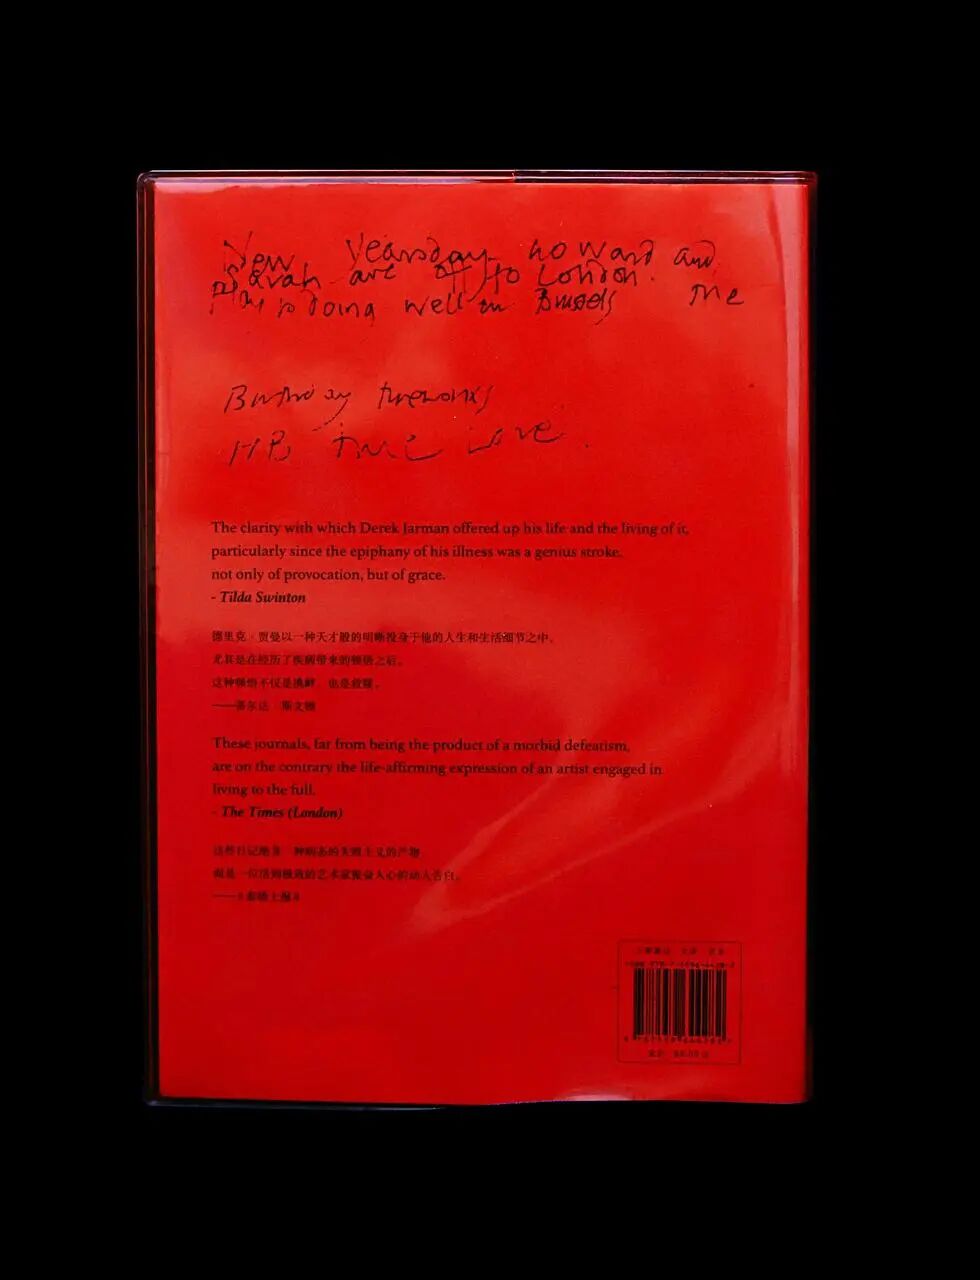 New Yearsday Howard and
Sarah are off to London.
Play is doing well in Brussels The
Birthday fireworks
HB true love.
The clarity with which Derek Jarman offered up his life and the living of it,
particularly since the epiphany of his illness was a genius stroke,
not only of provocation, but of grace.
- Tilda Swinton
德里克·贾曼以一种天才般的明晰投身于他的人生和生活细节之中。
尤其是在经历了疾病带来的顿悟之后。
这种顿悟不仅是挑衅，也是救赎。
——蒂尔达·斯文顿
These journals, far from being the product of a morbid defeatism,
are on the contrary the life-affirming expression of an artist engaged in
living to the full.
- The Times (London)
这些日记绝非一种病态的失败主义的产物
而是一位活到极致的艺术家振奋人心的动人告白。
——《泰晤士报》
定价